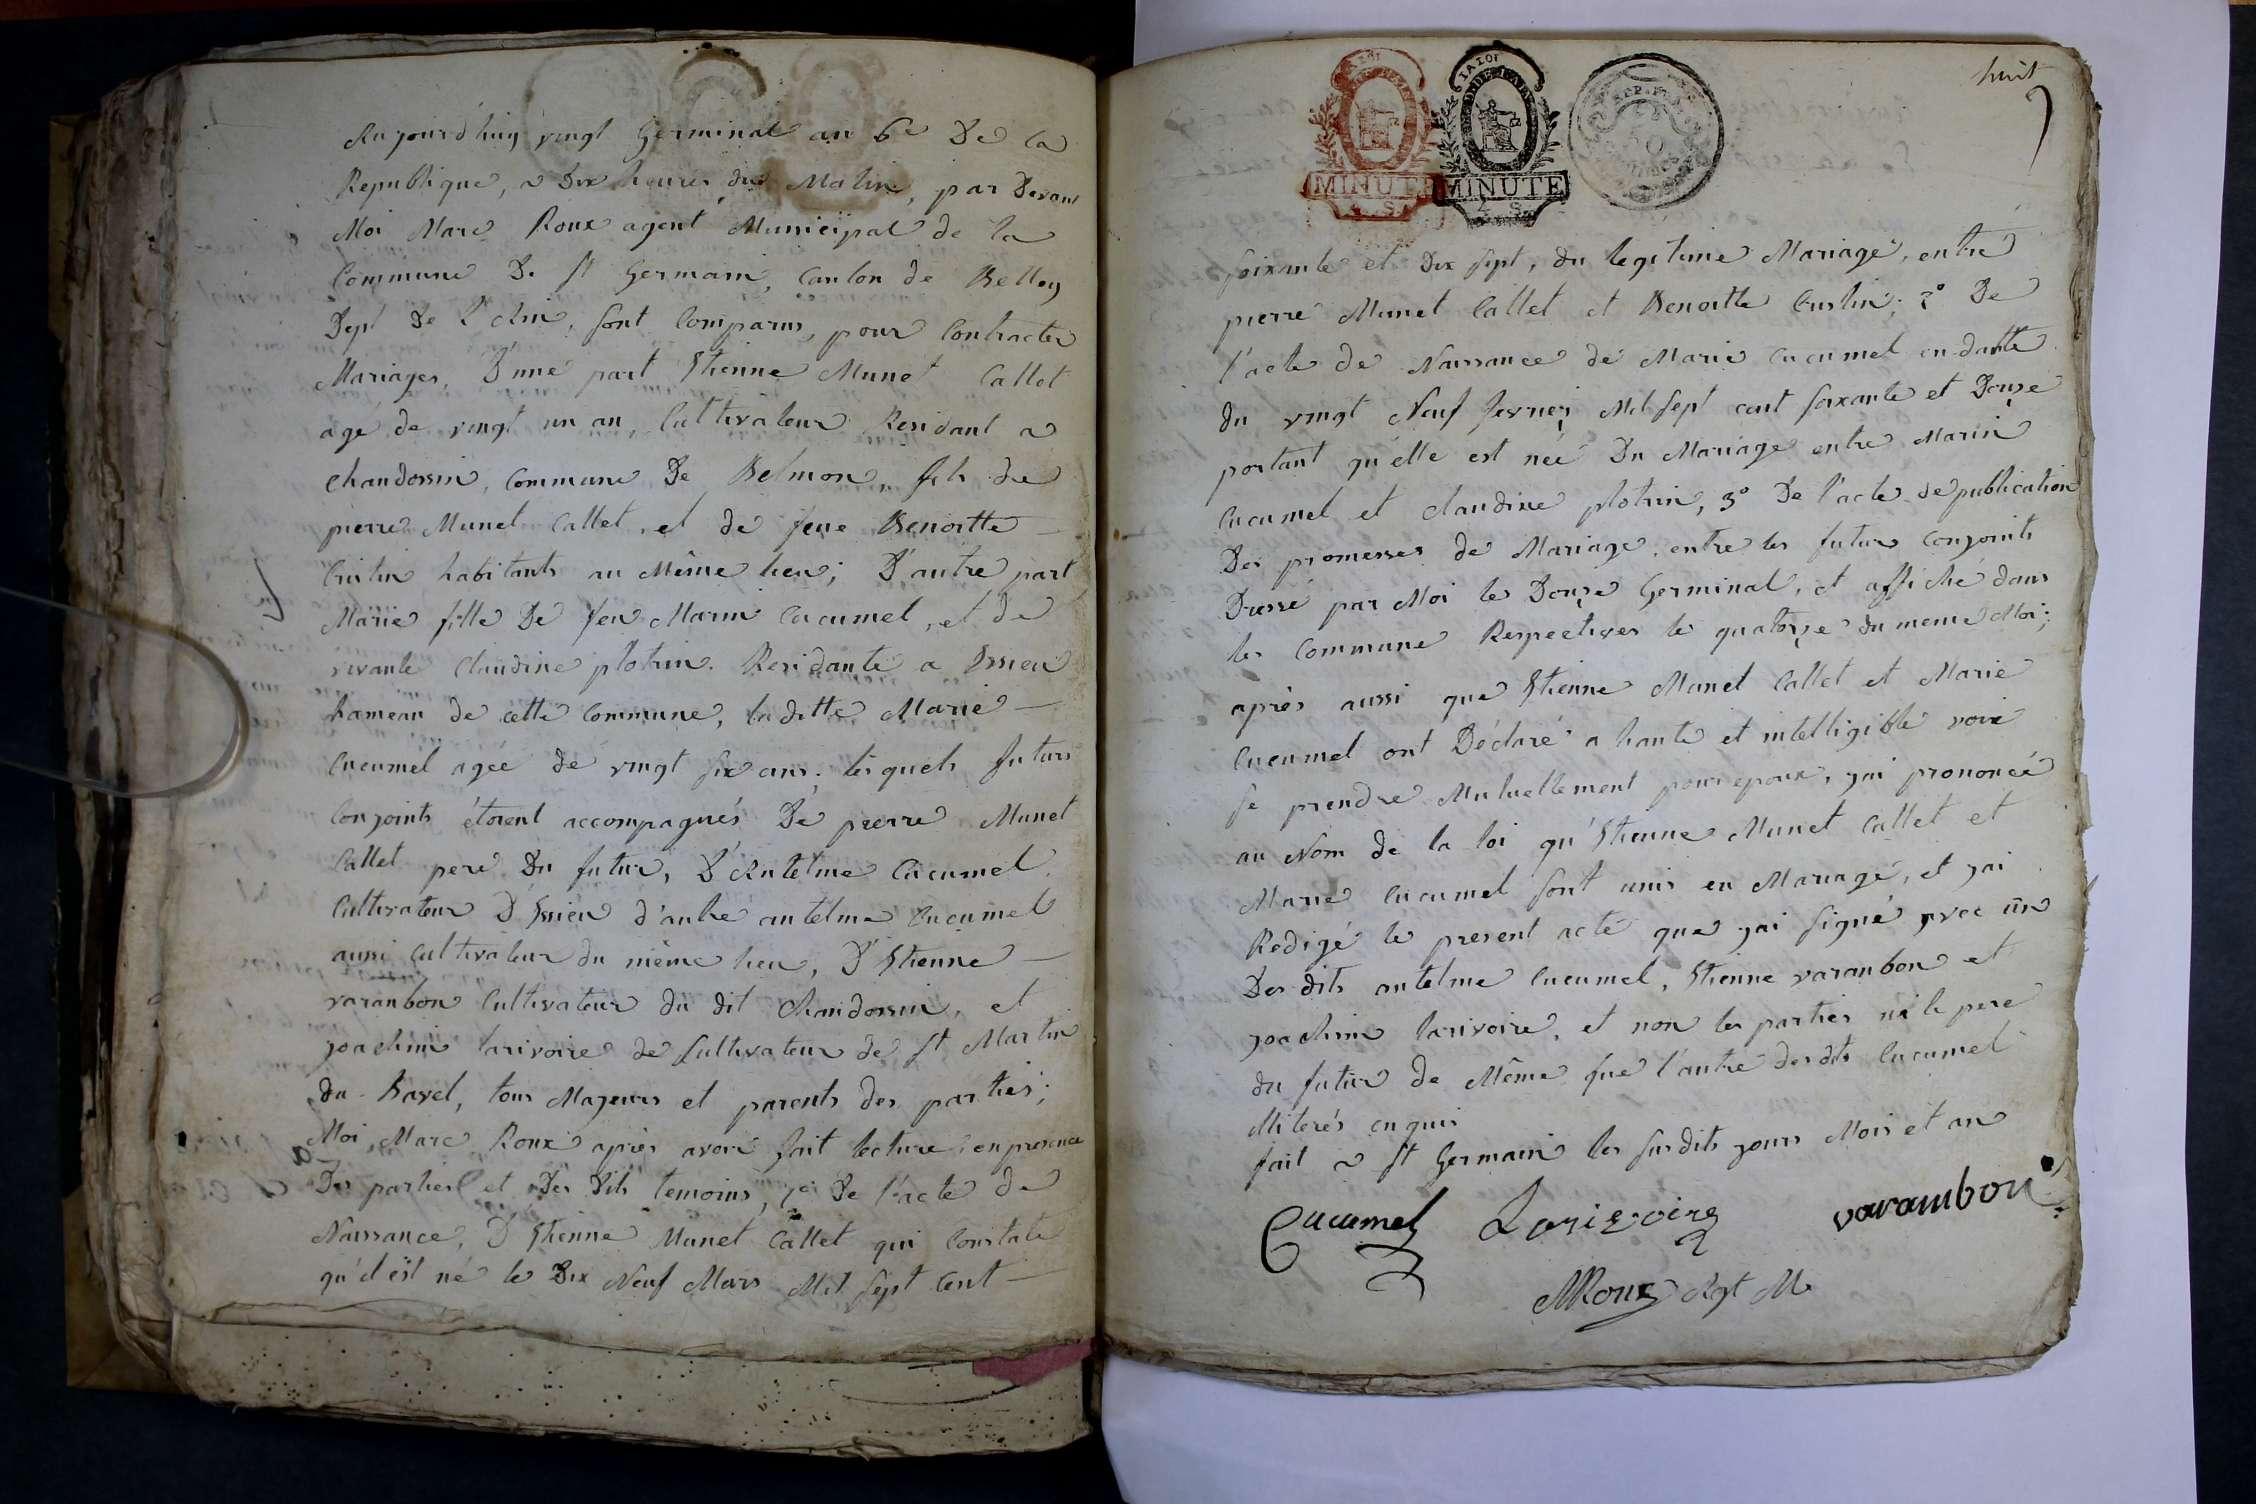 Aujourd'huy vingt Germinal an 6e De la
Republique, a Dix heures du Matin, par Devant
Moi Marc Roux agent Municipal de la
Commune De St Germain, Canton de Belley
Dept De l'Ain, sont Comparus, pour Contracter
Mariages, D'une part Etienne Munet Callet
agé de vingt un an, Cultivateur Residant a
Chandossin, Commune De Belmon, fils de
pierre Munet Callet, et de feue Benoitte
Cristin habitants au Même lieu; D'autre part
Marie fille De feu Marin Cucumel, et de
vivante Claudine plotrin. Residante a Essieu
hameau de cette Commune, laditte Marie
Cucumel agée de vingt six ans. lesquels futurs
Conjoints étoient accompagnés De pierre Munet
Callet pere Du futur, D'Antelme Cucumel
Cultivateur D'Essieu d'autre antelme Cucumel
aussi Cultivateur du même lieu, D'Etienne
varanbon Cultivateur du dit Chandossin, et
joachim larivoire de Cultivateur de St Martin
du Bavel, tous Majeurs et parents des parties;
Moi, Marc Roux après avoir fait lecture, en presence
Des parties et Des Dits temoins, 1° De l'acte de
Naissance, D'Etienne Munet Callet qui Constate
qu'il est né le Dix Neuf Mars Mil Sept Cent
huit
LA LOI
MINUTE
LA LOI
MINUTE
REP. FRA
50
soixante et Dix sept, du legitime Mariage, entre
pierre Munet Callet et Benoitte Cristin; 2° De
l'acte de Naissance de Marie Cucumel en datte
du vingt Neuf fevrier Mil sept cent soixante et Douze
portant qu'elle est née Du Mariage entre Marin
Cucumel et claudine plotrin, 3° De l'acte de publication
Des promesses de Mariage entre les futurs Conjoints
Dressé par Moi le Douze Germinal, et affiché dans
les Commune Respectives le quatorze du meme Moi;
après aussi que Etienne Munet Callet et Marie
Cucumel ont Déclaré a haute et intelligible voix
se prendre Mutuellement pour epoux, j'ai prononcée
au Nom de la loi qu'Etienne Munet Callet et
Marie Cucumel sont unis en Mariage, et j'ai
Redigé le present acte que j'ai signé avec un
Des dits antelme Cucumel, Etienne varanbon et
joachim larivoire, et non les parties ni le pere
du futur de Même que l'autre desdits Cucumel
Miterés enquis
fait a St Germain les susdits jours Mois et an
Cucumel Larivoire varambon
MRoux Agt M.